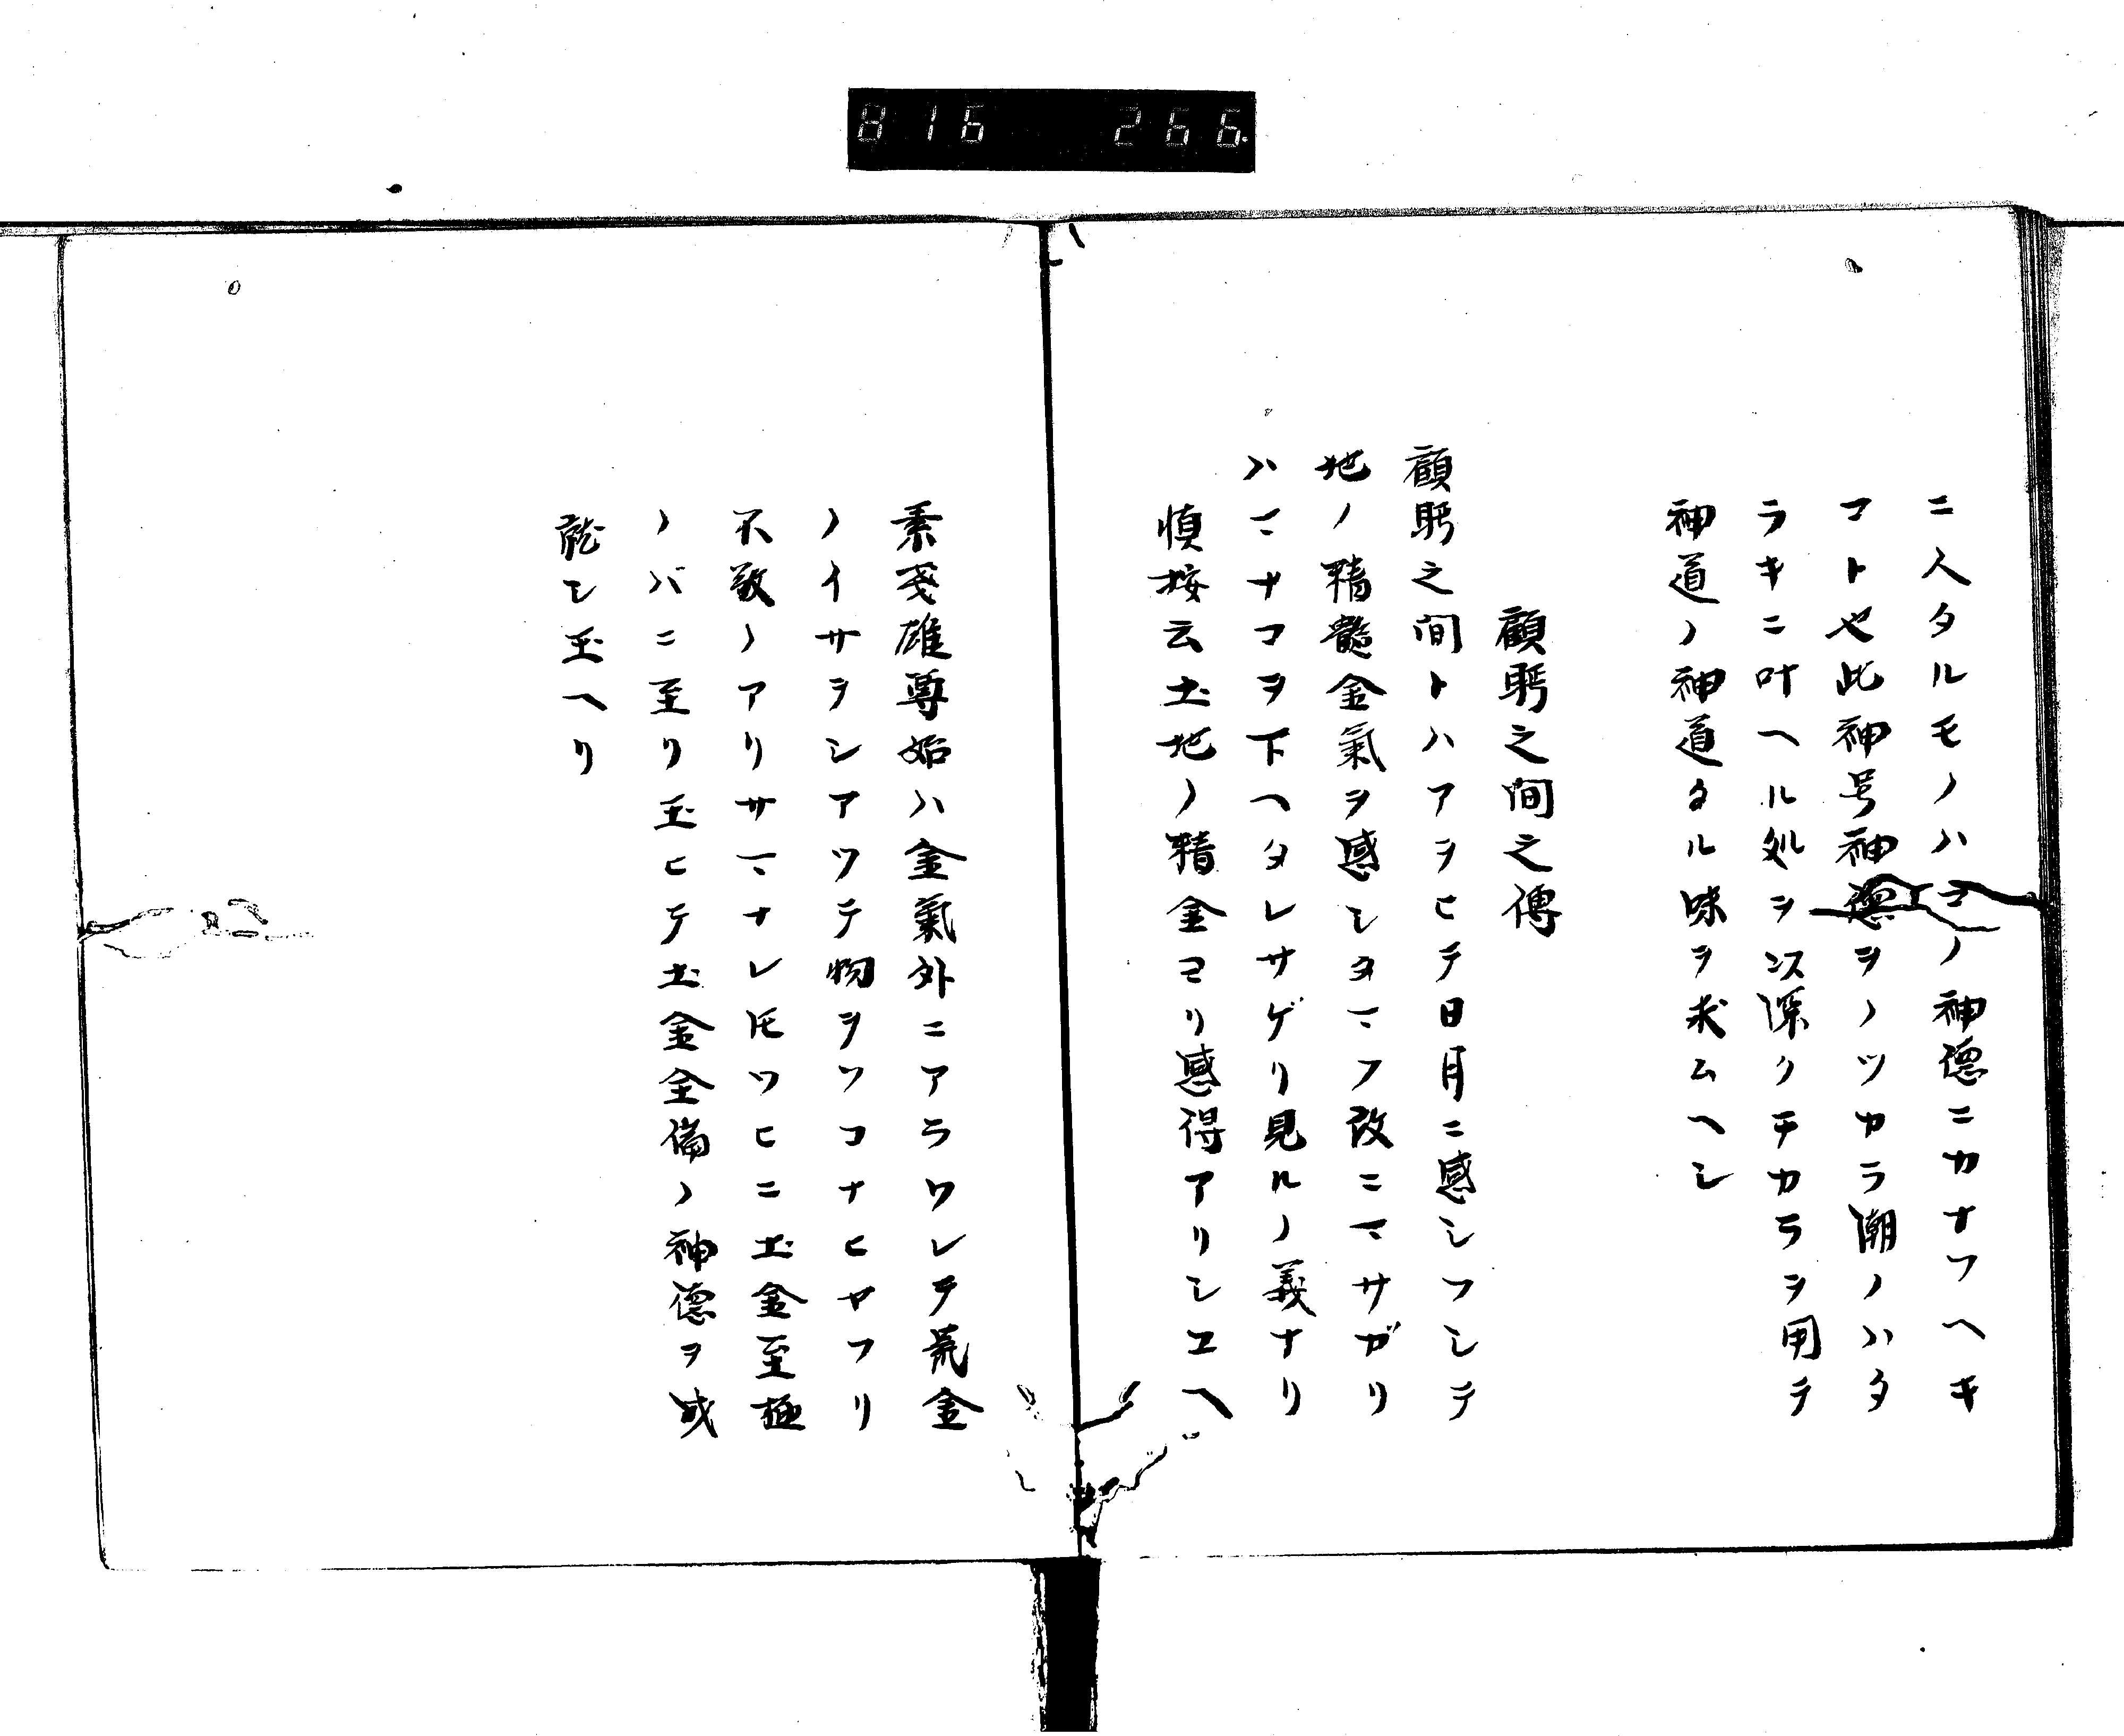 816 266.
ニ人タルモノハコノ神德ニカナフヘキ
コト也此神号神德ヲノツカラ潮ノハタ
ラキニ叶ヘル処ヲ以深クチカラヲ用テ
神道ノ神道タル味ヲ求ムヘシ
顧眄之間之傳
顧眄之間トハアヲヒテ日月ニ感シフシテ
地ノ精髓金氣ヲ感シタマフ故ニマサガリ
ハマナコヲ下ヘタレサゲリ見ルノ義ナリ
慎按云土地ノ精金ヨリ感得アリシユヘ
素戔雄尊始ハ金氣外ニアラワレテ荒金
ノイサヲシアツテ物ヲソコナヒヤフリ
不敬ノアリサマナレ𪜈ツヒニ土金至極
ノバニ至リ玉ヒテ土金全備ノ神德ヲ成
就シ玉ヘリ